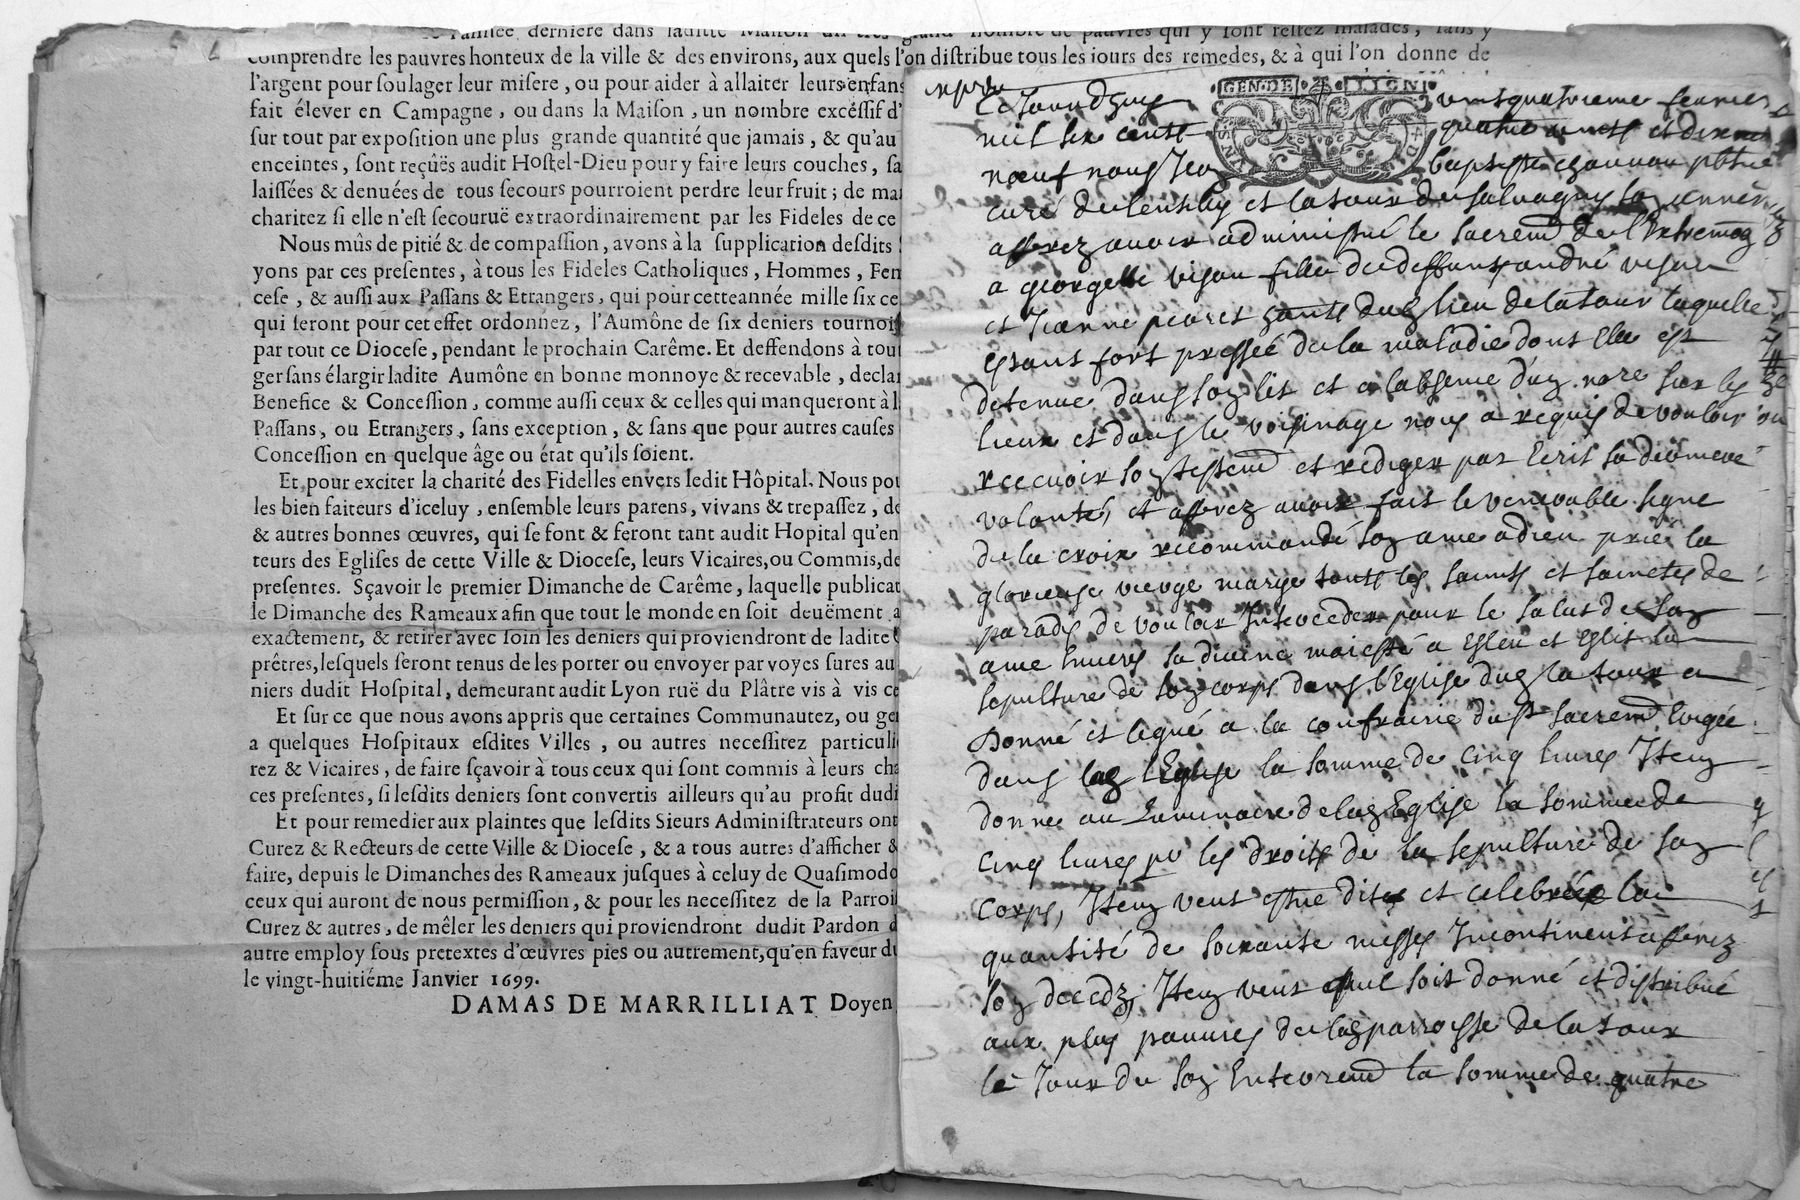 l'année derniere dans laditte Maison un tres grand nombre de pauvres qui y sont restez malades, sans y
comprendre les pauvres honteux de la ville & des environs, aux quels l'on distribue tous les iours des remedes, & à qui l'on donne de
l'argent pour soulager leur misere, ou pour aider à allaiter leurs enfans
fait élever en Campagne, ou dans la Maison, un nombre excéssif d'
sur tout par exposition une plus grande quantité que jamais, & qu'au
enceintes, sont reçûës audit Hostel-Dieu pour y faire leurs couches, sa
laissées & denuées de tous secours pourroient perdre leur fruit; de ma
charitez si elle n'est secouruë extraordinairement par les Fideles de ce
Nous mûs de pitié & de compassion, avons à la supplication desdits
yons par ces presentes, à tous les Fideles Catholiques, Hommes, Fem
cese, & aussi aux Passans & Etrangers, qui pour cette année mille six ce
qui seront pour cet effet ordonnez, l'Aumône de six deniers tournois
par tout ce Diocese, pendant le prochain Carême. Et deffendons à tou
ger sans élargir ladite Aumône en bonne monnoye & recevable, declar
Benefice & Concession, comme aussi ceux & celles qui manqueront à l
Passans, ou Etrangers, sans exception, & sans que pour autres causes
Concession en quelque âge ou état qu'ils soient.
Et pour exciter la charité des Fidelles envers ledit Hôpital. Nous pou
les bien faiteurs d'iceluy, ensemble leurs parens, vivans & trepassez, de
& autres bonnes œuvres, qui se font & feront tant audit Hopital qu'en
teurs des Eglises de cette Ville & Diocese, leurs Vicaires, ou Commis, de
presentes. Sçavoir le premier Dimanche de Carême, laquelle publicat
le Dimanche des Rameaux afin que tout le monde en soit deuëment a
exactement, & retirer avec soin les deniers qui proviendront de ladite
prêtres, lesquels seront tenus de les porter ou envoyer par voyes sures au
niers dudit Hospital, demeurant audit Lyon ruë du Plâtre vis à vis ce
Et sur ce que nous avons appris que certaines Communautez, ou ge
a quelques Hospitaux esdites Villes, ou autres necessitez particuli
rez & Vicaires, de faire sçavoir à tous ceux qui sont commis à leurs cha
ces presentes, si lesdits deniers sont convertis ailleurs qu'au profit dudi
Et pour remedier aux plaintes que lesdits Sieurs Administrateurs ont
Curez & Recteurs de cette Ville & Diocese, & a tous autres d'afficher &
faire, depuis le Dimanches des Rameaux jusques à celuy de Quasimodo
ceux qui auront de nous permission, & pour les necessitez de la Parroi
Curez & autres, de mêler les deniers qui proviendront dudit Pardon d
autre employ sous pretextes d'œuvres pies ou autrement, qu'en faveur du
le vingt-huitiéme Janvier 1699.
DAMAS DE MARRILLIAT Doyen
GEN·DE LYON
Ce Jourdhuy vintquatrieme fevrier
mil six cents quatre vints et dix
nœuf nous Jea baptiste
curé de lentilly et la tour de salvagny
apprez avoir administré le sacremt de l'Extremon
a georgette fille de deffunt andré
et Jeanne du lieu de la tour laquelle
estant fort pressée de la maladie dont Elle est
detenue dans son lit et a l'absence d'un nore sur les
lieux et dans le voisinage nous a requis de vouloir
recevoir son testemt et rediger par Ecrit sa derniere
volonté, et apprez avoir fait le venerable signe
de la croix recommandé son ame a dieu prié la
glorieuse vierge marye touts les saints et sainctes de
paradis de vouloir Interceder pour le salut de son
ame Envers sa divine maiesté a Esleu et Eslit la
sepulture de son corps dans l'Eglise de la tour a
Donné et legué a la confrairie du st sacremt Erigée
dans lad Eglise la somme de cinq livres Item
donne au Luminaire de lad Eglise la somme de
cinq livres pr les droits de la sepulture de son
corps, Item veut estre dites et celebrées la
quantité de soixante messes Incontinent apprez
son decedz, Item veut quil soit donné et distribué
aux plus pauvres de lad parroisse de la tour
le Jour de son Enterremt la somme de quatre